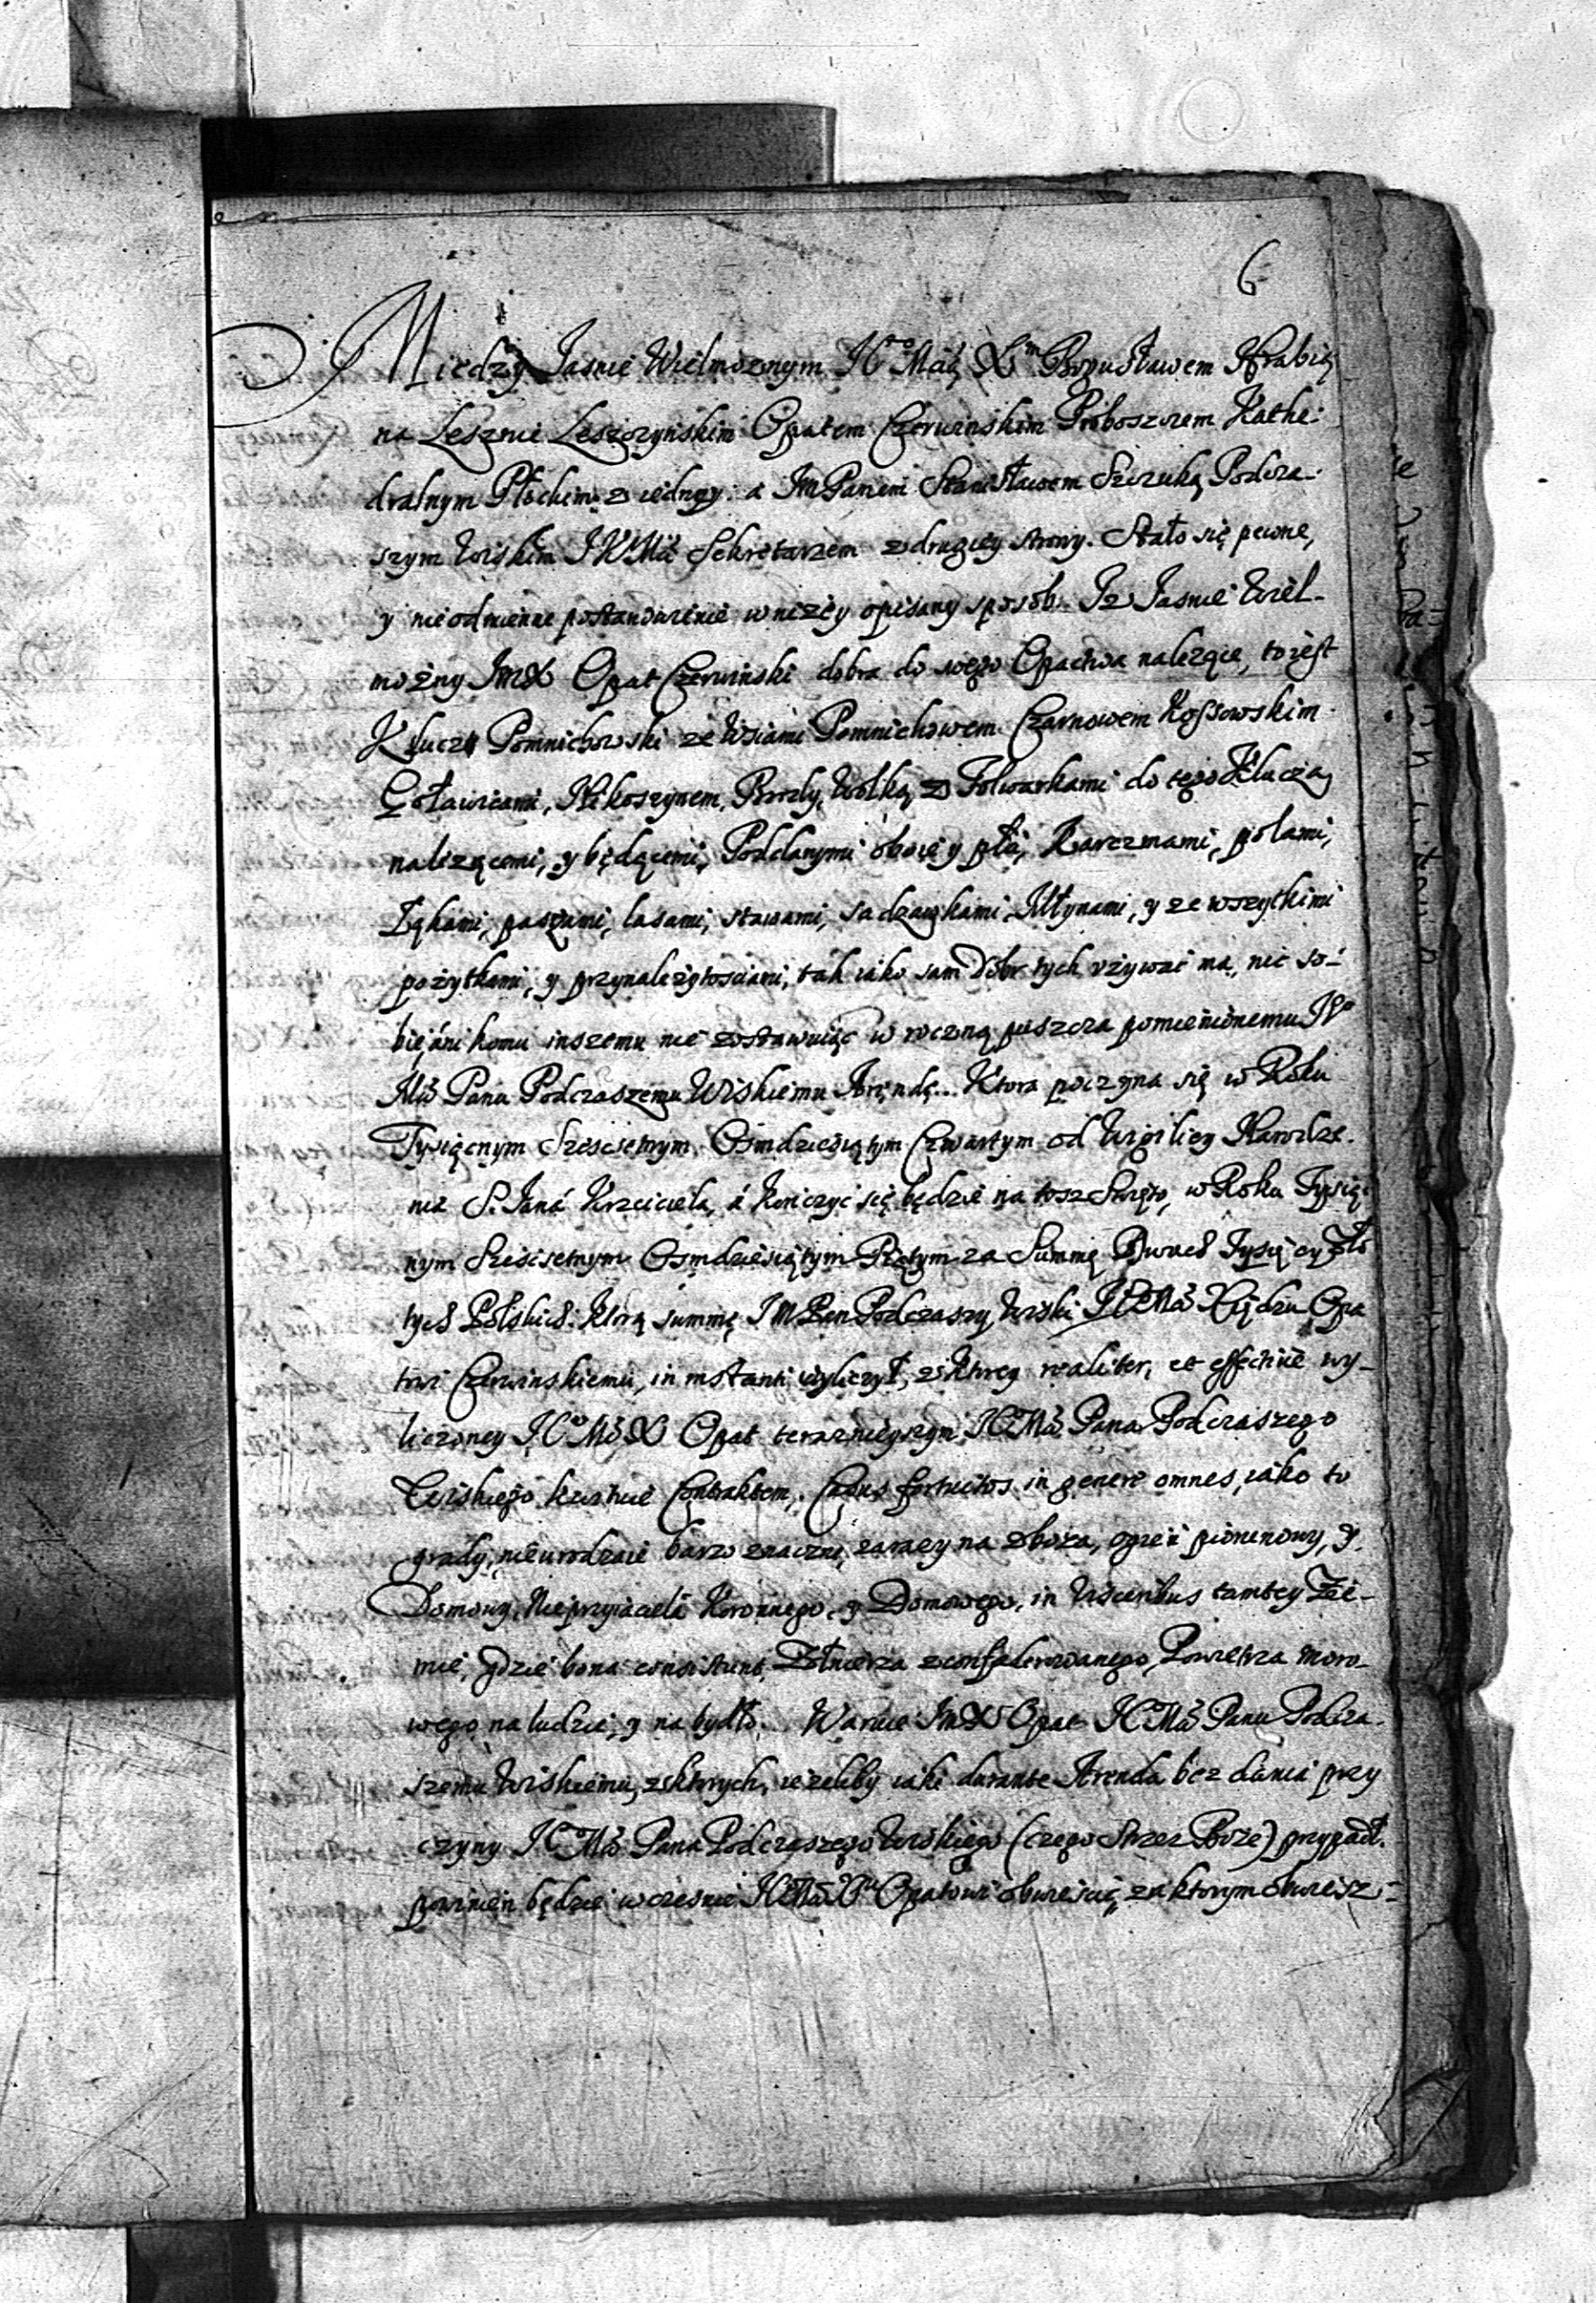 6
Miedzy Jasnie Wielmoznym JCo Mcią Xm Bogusławem Hrabią
na Lesznie Leszczyńskim Opatem Czerwinskim Proboszczem Kathe:
dralnym Płockim z iedney: a JmPanem Stanisławem Szczuką Podcza-
szym Wiskim JKMci Sekretarzem z drugiey strony. Stało się pewne,
y nieodmienne postanowienie w nizey opisany sposob. Iz Jasnie Wiel-
możny JmX Opat Czerwinski dobra do swego Opactwa nalezące, to iest
Klucz Pomnichowski ze Wsiami Pomnichowem Czarnowem Kossowskim
Goławicami, Nikoszynem, Brody, Wolką, z Folwarkami do tego Klucza
nalezącemi, y będącemi, Poddanymi oboiey płci, Karczmami, polami,
Łąkami, paszami, lasami, stawami, sadzawkami, Młynami, y ze wszytkimi
pożytkami, y przynależytosciami, tak iako sam Dobr tych używać ma, nic so-
bie, ani komu inszemu nie zostawuiąc w roczną puszcza pomienionemu JCo
Mci Panu Podczaszemu Wiskiemu Arendę... Ktora poczyna się w Roku
Tysiącnym Szescsetnym Osmdziesiątym Czwartym od Wigiliey Narodze-
nia S. Jana Krzciciela, á konczyć się będzie na tosz Swięto, w Roku Tysiąc
nym Szescsetnym Osmdziesiątym Piątym za Summę Dwuch Tysięcy Zło
tych Polskich: Ktorą summę JmPan Podczaszy Wiski JCMci Xiędzu Opa
towi Czerwinskiemu, in instanti wyliczył, z ktorey realiter, et effective wy-
liczoney JCo Mci X Opat teraznieyszym JCMci Pana Podczaszego
Wiskiego kwituie Contraktem. Casus fortuitos in genere omnes, iako to
grady, nieurodzaie barzo znaczne, zarazy na zboża, ogień piorunowy, y
Domowy, Nieprzyiaciela Koronnego, y Domowego, in visceribus tamtey Zie-
mie, gdzie bona consistunt, Zołnierza zconfederowanego, Powietrza moro-
wego na ludzie, y na bydło. Waruie JmX Opat JCMci Panu Podcza-
szemu Wiskiemu, z ktorych, iezeliby iaki durante Arenda bez dania przy
czyny JCMci Pana Podczaszego Wiskiego (czego Strzez Boże) przypadł.
powinien będzie wczesnie JCMci Xu Opatowi obwieścić, za ktorym obwiesz-